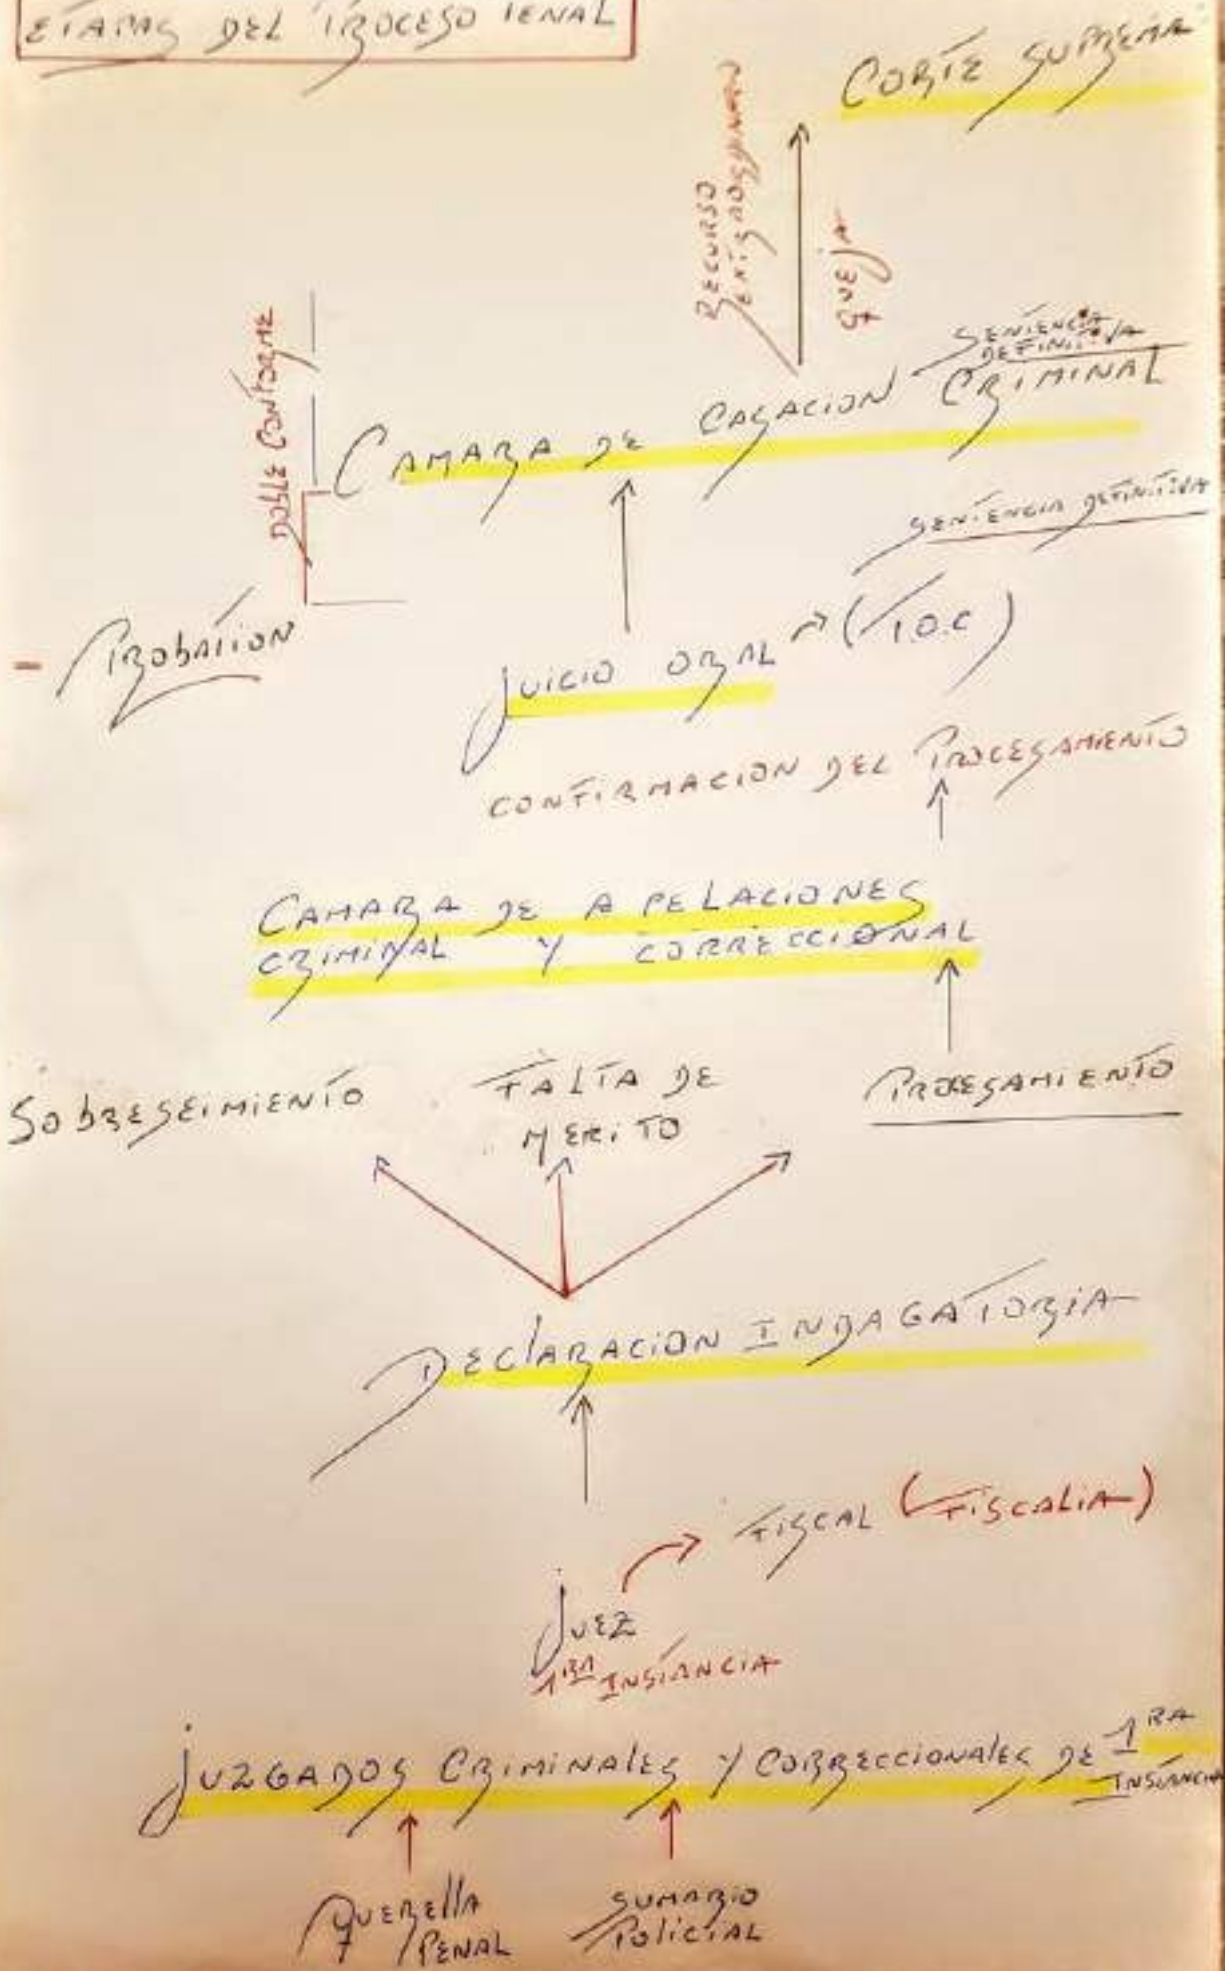 ETAPAS DEL PROCESO PENAL
CORTE SUPREMA
RECURSO
EXTRAORDINARIO
QUEJA
SENTENCIA
DEFINITIVA
CAMARA DE CASACION CRIMINAL
DOBLE CONFORME
SENTENCIA DEFINITIVA
- Probation
JUICIO ORAL → (T.O.C)
CONFIRMACION DEL PROCESAMIENTO
CAMARA DE APELACIONES
CRIMINAL Y CORRECCIONAL
SOBRESEIMIENTO
FALTA DE
MERITO
PROCESAMIENTO
DECLARACION INDAGATORIA
FISCAL (FISCALIA)
JUEZ
1RA INSTANCIA
JUZGADOS CRIMINALES Y CORRECCIONALES DE 1RA
INSTANCIA
QUERELLA
PENAL
SUMARIO
POLICIAL